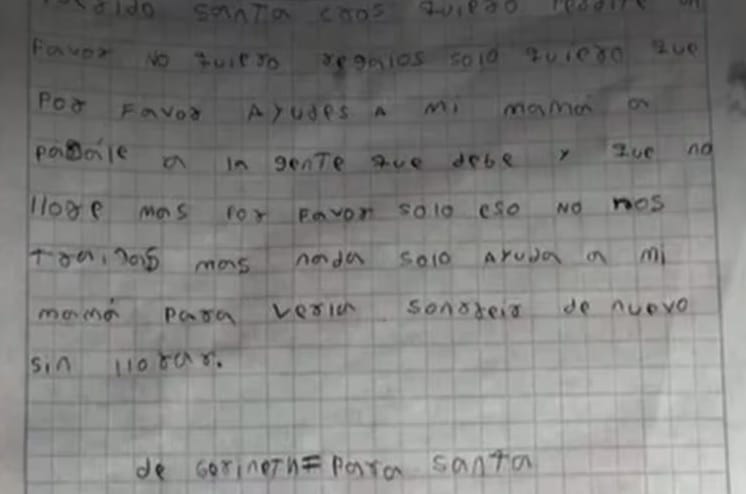 santa caos quiero pedirte un
Favor No quiero regalos solo quiero que
Por Favor Ayudes A mi mamá a
pagale a la gente que debe y que no
llore mas Por Favor solo eso NO nos
traigas mas nada solo Ayuda a mi
mamá para verla sonrreir de nuevo
sin llorar.
de Gorineth = para santa